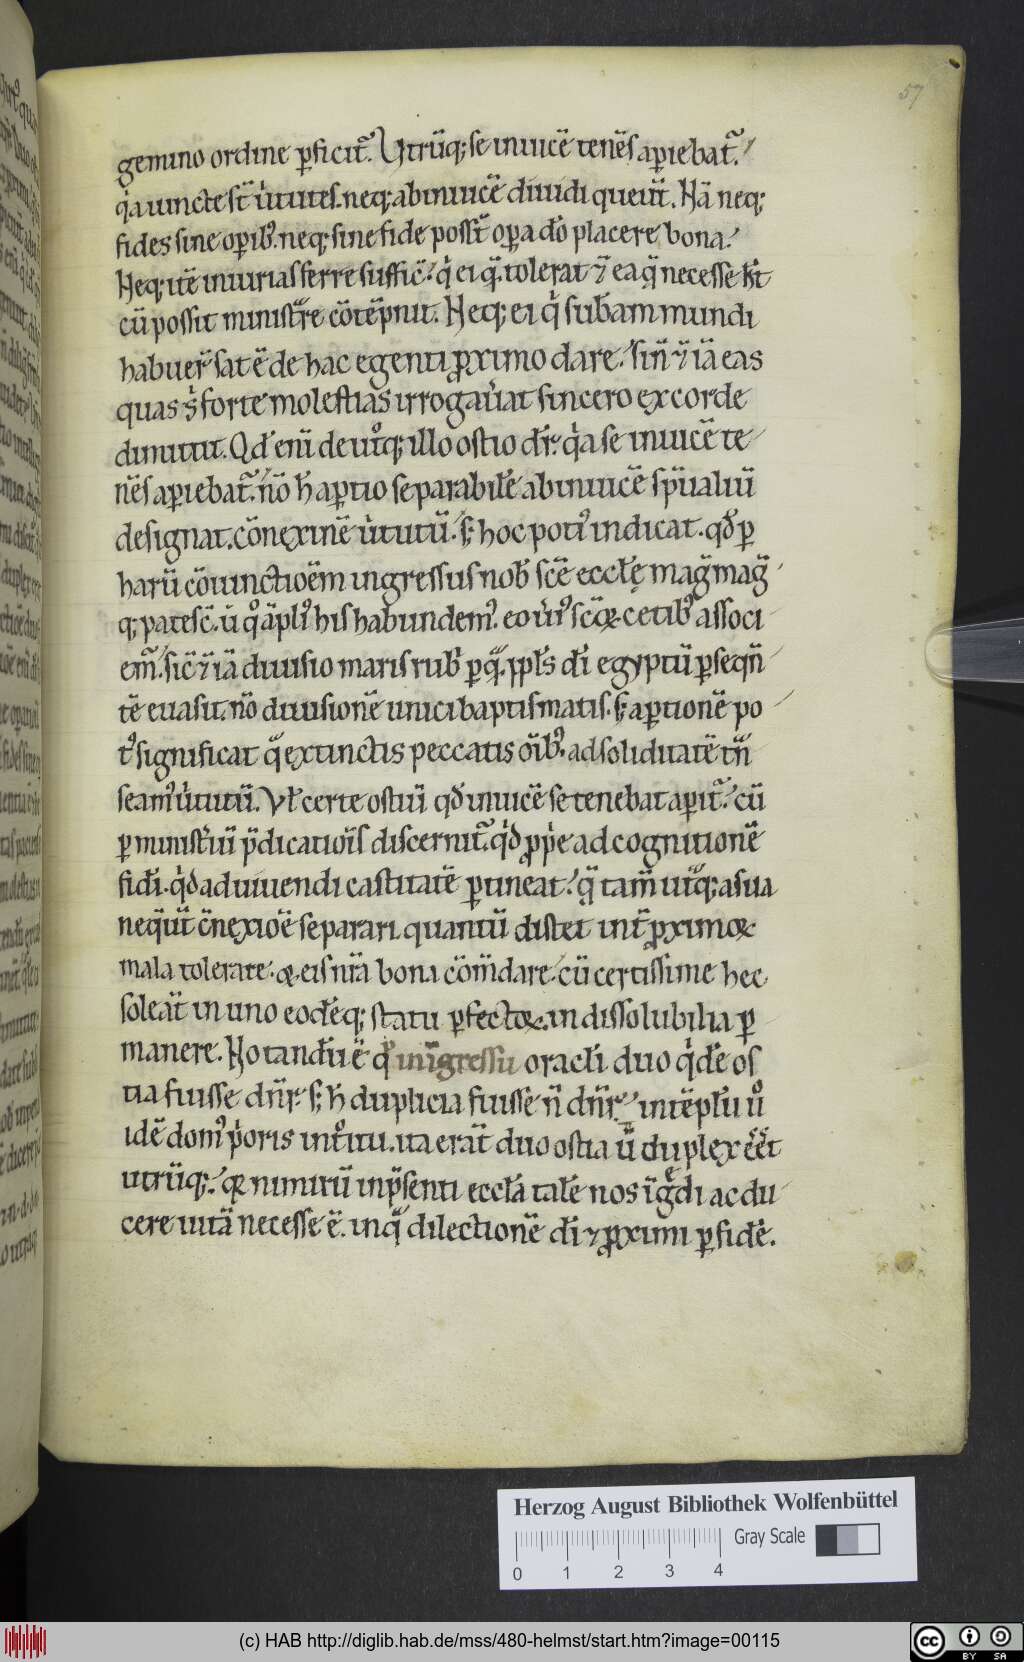 57
gemino ordine ꝑficit᷑. Vtrūq; se inuicē tenēs aꝑiebat᷑.
qͥa iuncte st̄ uͥtutes. neq; ab inuicē diuidi queūt. Nā neq;
fides sine oꝑibꝰ. neq; sine fide posst̄ oꝑa dō placere bona.
Neq; itē iniurias ferre suffic̄. qͥ ei q̄ tolerat ⁊ ea q̄ necesse hт̄
cū possit ministᷓre cōtēpnit. Neq; ei qͥ subām mundi
habuer̄ sat ē de hac egenti ꝓximo dare. sin̄ ⁊ iā eas
quas sͥ forte molestias irrogauͥat sincero ex corde
dimittit. Qd̄ enī de utͦq; illo ostio dr̄. qͥa se inuicē te
nēs aꝑiebat᷑. nō h̄ aꝑtio separabilē ab inuicē spūaliū
designat. cōnexinē uͥtutū. s; hoc potiꝰ indicat. qd̄ ꝑ
harū cōiunctioēm ingressus nob̄ scē ecclę maḡ maḡ
q; patesc̄. ū qͦ āplꝰ his habundemꝰ. eo uͥiꝰ scōꝝ cetibꝰ associ
em᷑. sic̄ ⁊ iā diuisio maris rubͥ ꝑ qᷓ. ppl̄s di egyptū ꝑseqn̄
tē euasit. nō diuisionē unici baptismatis. s; aꝑtionē po
tꝰ significat qᷓ extinctis peccatis oīb᷒. ad soliditatē tn̄
seamꝰ uͥtutū. Vl̄ certe ostiū qd̄ inuicē se tenebat aꝑit᷑. cū
ꝑ ministͥiū p̄dicatiōis discernit᷑. qͥd ꝓpͥe ad cognitionē
fidi. qͥd ad uiuendi castitatē ꝑtineat. q̄ tam̄ utᷓq; a sua
neq̄ut c̄nexiōe separari. quantū distet int̄ ꝓximoꝝ
mala tolerare. ꝗ. eis nr̄a bona cōm̄dare. cū certissime hec
soleāt in uno eodēq; statu ꝑfectoꝝ. indissolubilia ꝑ
manere. Notand̄u ē qͦ in īgressu oracl̄i duo qͥdē os
tia fuisse dn̄r. s; h̄ duplicia fuisse n̄ dn̄r. in tēpl̄u uͦ
idē domꝰ pͥoris intͦitu. ita erāt duo ostia ū duplex ēēt
utrūq;. ꝗ nimirū in p̄senti eccl̄a talē nos īgᷓdi ac du
cere uitā necesse ē. in qᷓ dilectionē dī ⁊ ꝓximi ꝑ fidē.
Herzog August Bibliothek Wolfenbüttel
Gray Scale
0 1 2 3 4
(c) HAB http://diglib.hab.de/mss/480-helmst/start.htm?image=00115
cc BY SA